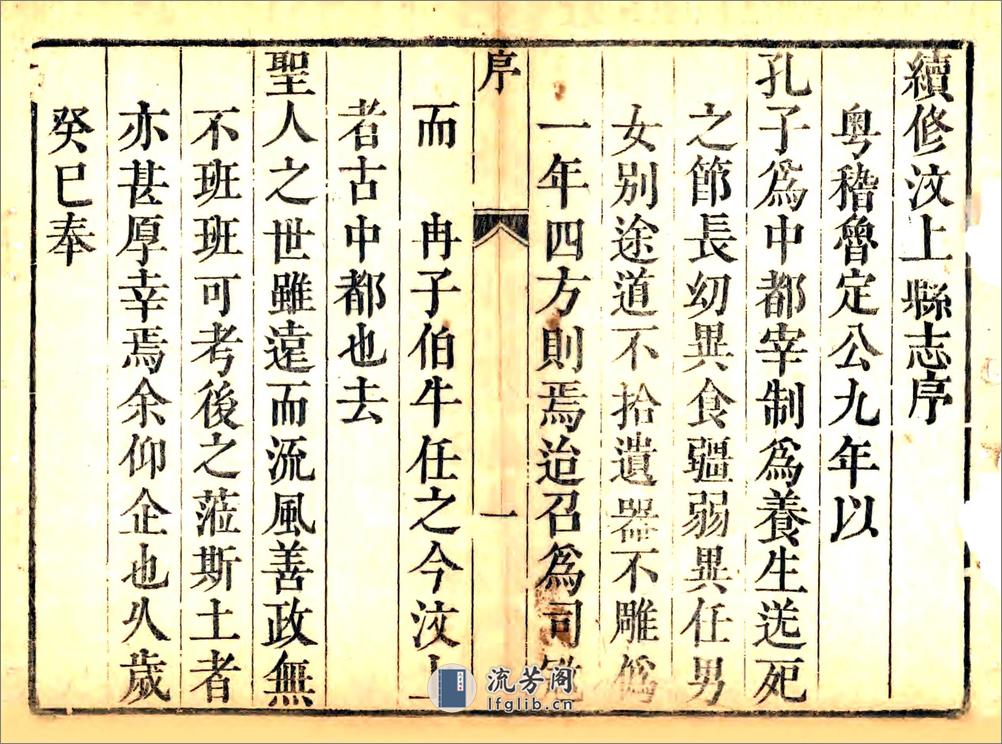 續修汶上縣志序
粤稽魯定公九年以
孔子爲中都宰制爲養生送死
之節長幼異食疆弱異任男
女别途道不拾遺器不雕僞
一年四方則焉迨召爲司
序
一
而 冉子伯牛任之今汶上
者古中都也去
聖人之世雖遠而流風善政無
不班班可考後之蒞斯土者
亦甚厚幸焉余仰企也久歲
癸巳奉
流芳阁
lfglib.cn